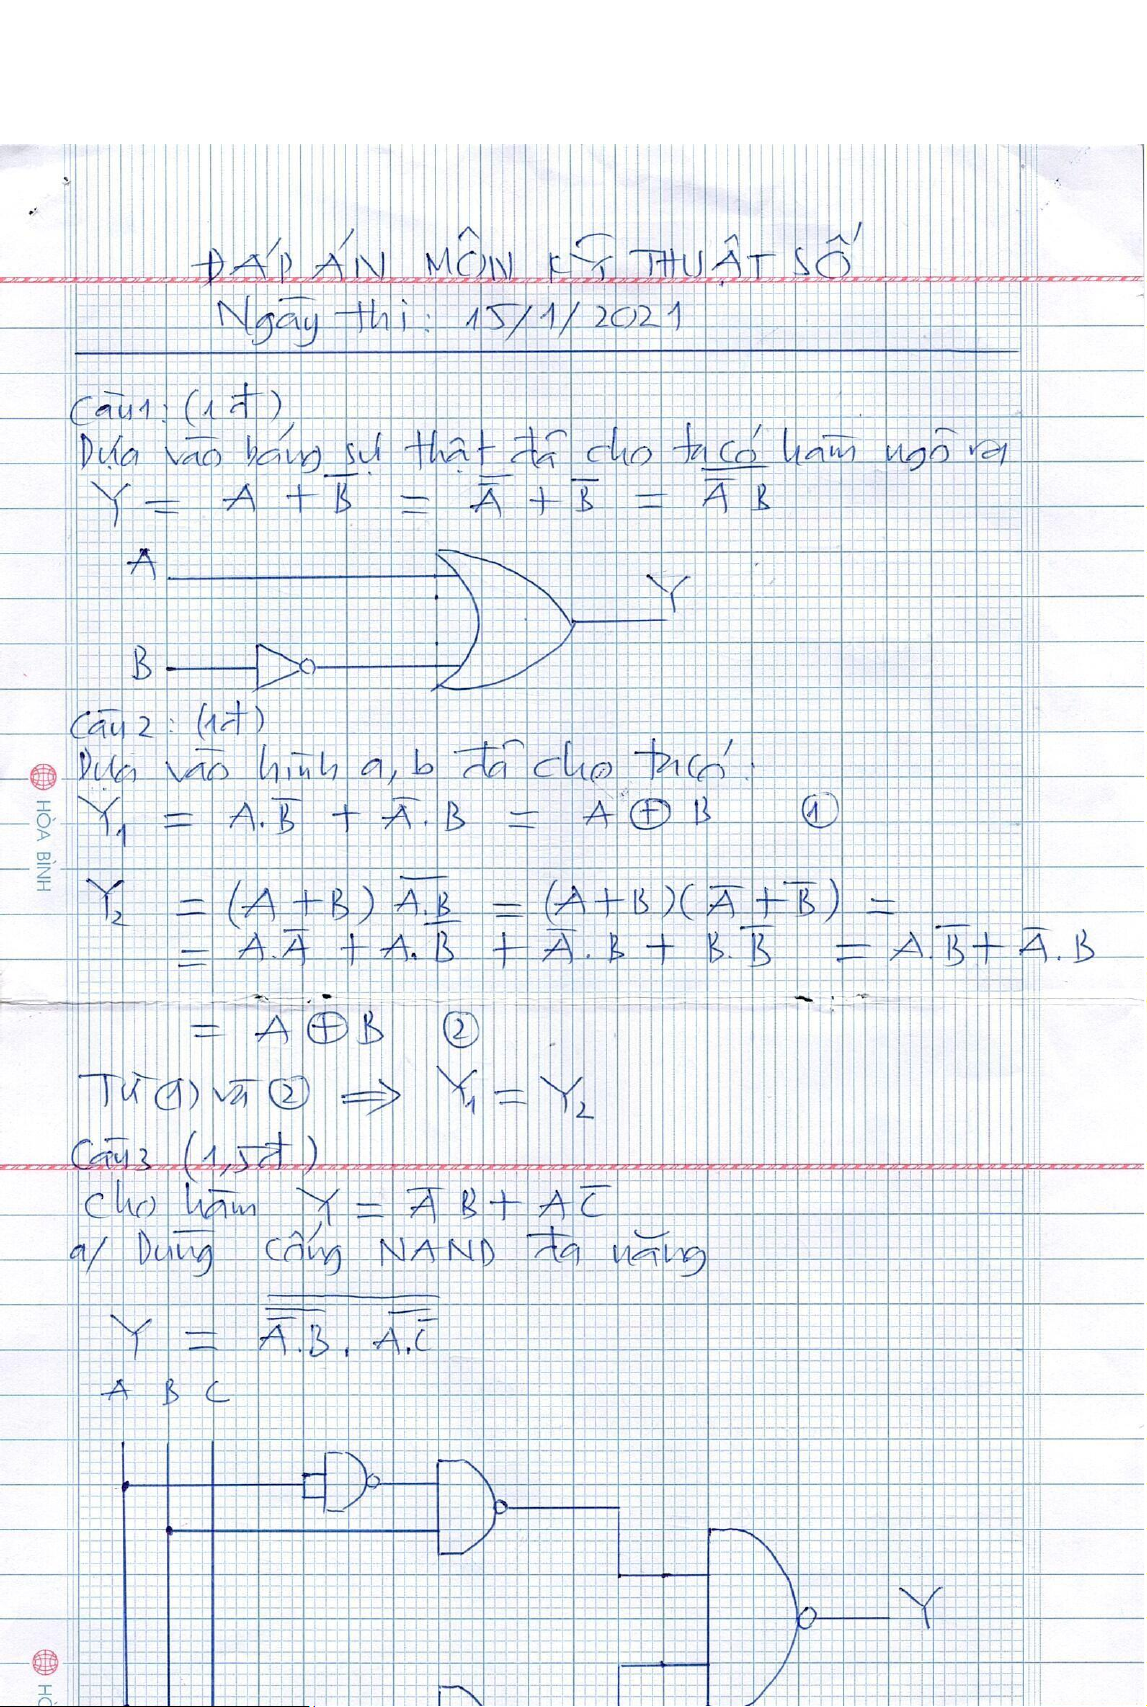 ĐÁP ÁN MÔN KỸ THUẬT SỐ
Ngày thi: 15/1/2021
Câu1: (1đ)
Dựa vào bảng sự thật đã cho ta có hàm ngõ ra
Y = A + B̅ = A̿ + B̅ = \overline{A̅ B}
A
Y
B
Câu 2: (1đ)
Dựa vào hình a, b đã cho ta có:
Y₁ = A.B̅ + A̅.B = A ⊕ B ①
Y₂ = (A+B) \overline{A.B} = (A+B)(A̅ + B̅) =
= A.A̅ + A.B̅ + A̅.B + B.B̅ = A.B̅ + A̅.B
= A ⊕ B ②
Từ (1) và ② ⟹ Y₁ = Y₂
Câu 3 (1,5đ)
Cho hàm Y = A̅ B + A C̅
a/ Dùng cổng NAND đa năng
Y = \overline{\overline{A̅.B} . \overline{A.C̅}}
A B C
Y
HÒA BÌNH
HÒ